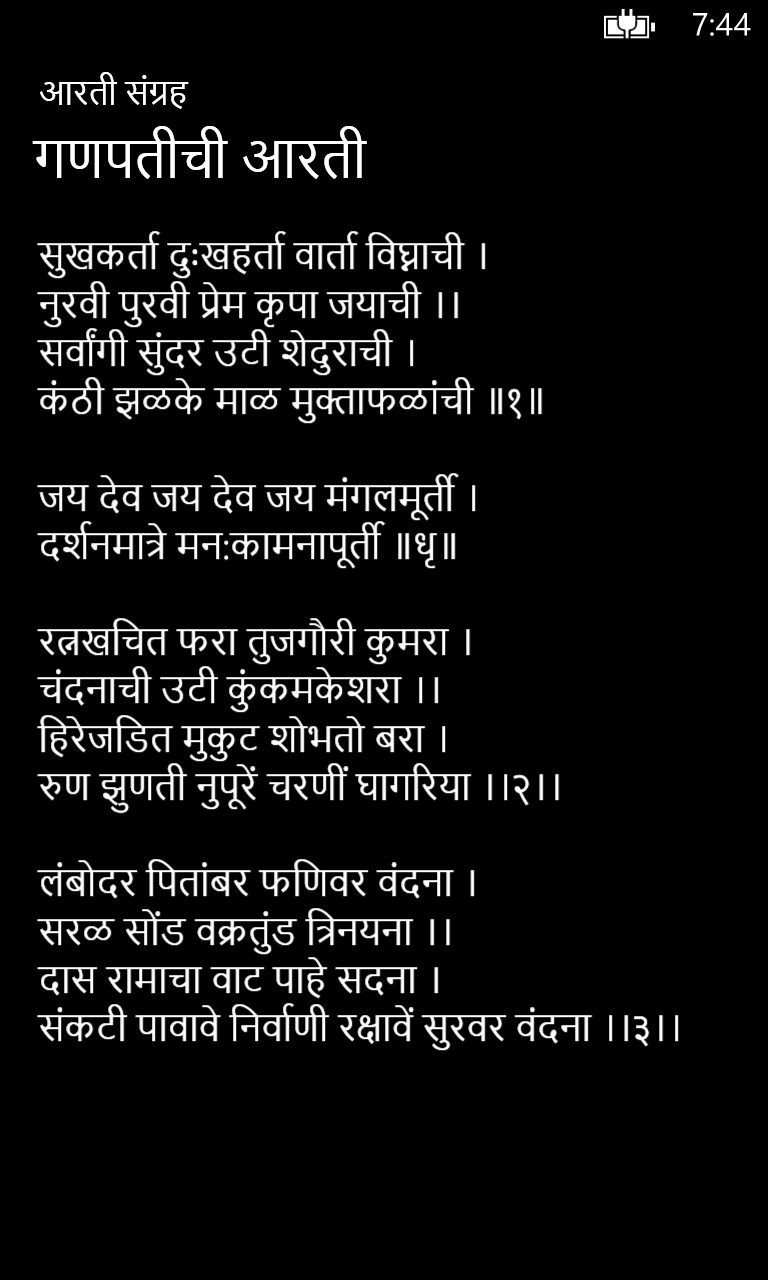 7:44
आरती संग्रह
गणपतीची आरती
सुखकर्ता दुःखहर्ता वार्ता विघ्नाची ।
नुरवी पुरवी प्रेम कृपा जयाची ।।
सर्वांगी सुंदर उटी शेदुराची ।
कंठी झळके माळ मुक्ताफळांची ॥१॥
जय देव जय देव जय मंगलमूर्ती ।
दर्शनमात्रे मन:कामनापूर्ती ॥धृ॥
रत्नखचित फरा तुजगौरी कुमरा ।
चंदनाची उटी कुंकमकेशरा ।।
हिरेजडित मुकुट शोभतो बरा ।
रुण झुणती नुपूरें चरणीं घागरिया ।।२।।
लंबोदर पितांबर फणिवर वंदना ।
सरळ सोंड वक्रतुंड त्रिनयना ।।
दास रामाचा वाट पाहे सदना ।
संकटी पावावे निर्वाणी रक्षावें सुरवर वंदना ।।३।।